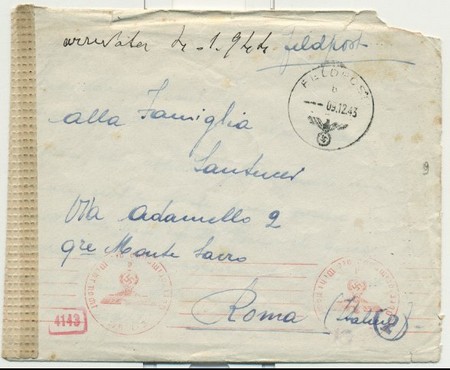 Feldpost
FELDPOST
b
09.12.43
alla Famiglia
Santucci
Via Adamello 2
qre Monte Sacro
Roma (Italia)
4143